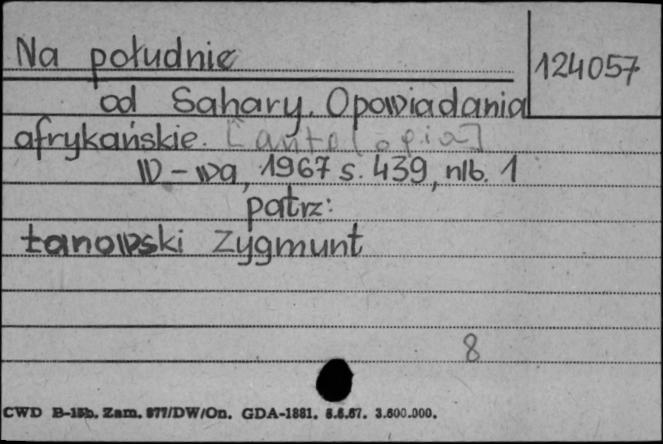 Na południe
124057
od Sahary. Opowiadania
afrykańskie. [antologia]
W-wa, 1967 s. 439, nlb. 1
patrz:
Łanowski Zygmunt
8
CWD B-15b. Zam. 977/DW/On. GDA-1881. 8.6.67. 3.600.000.